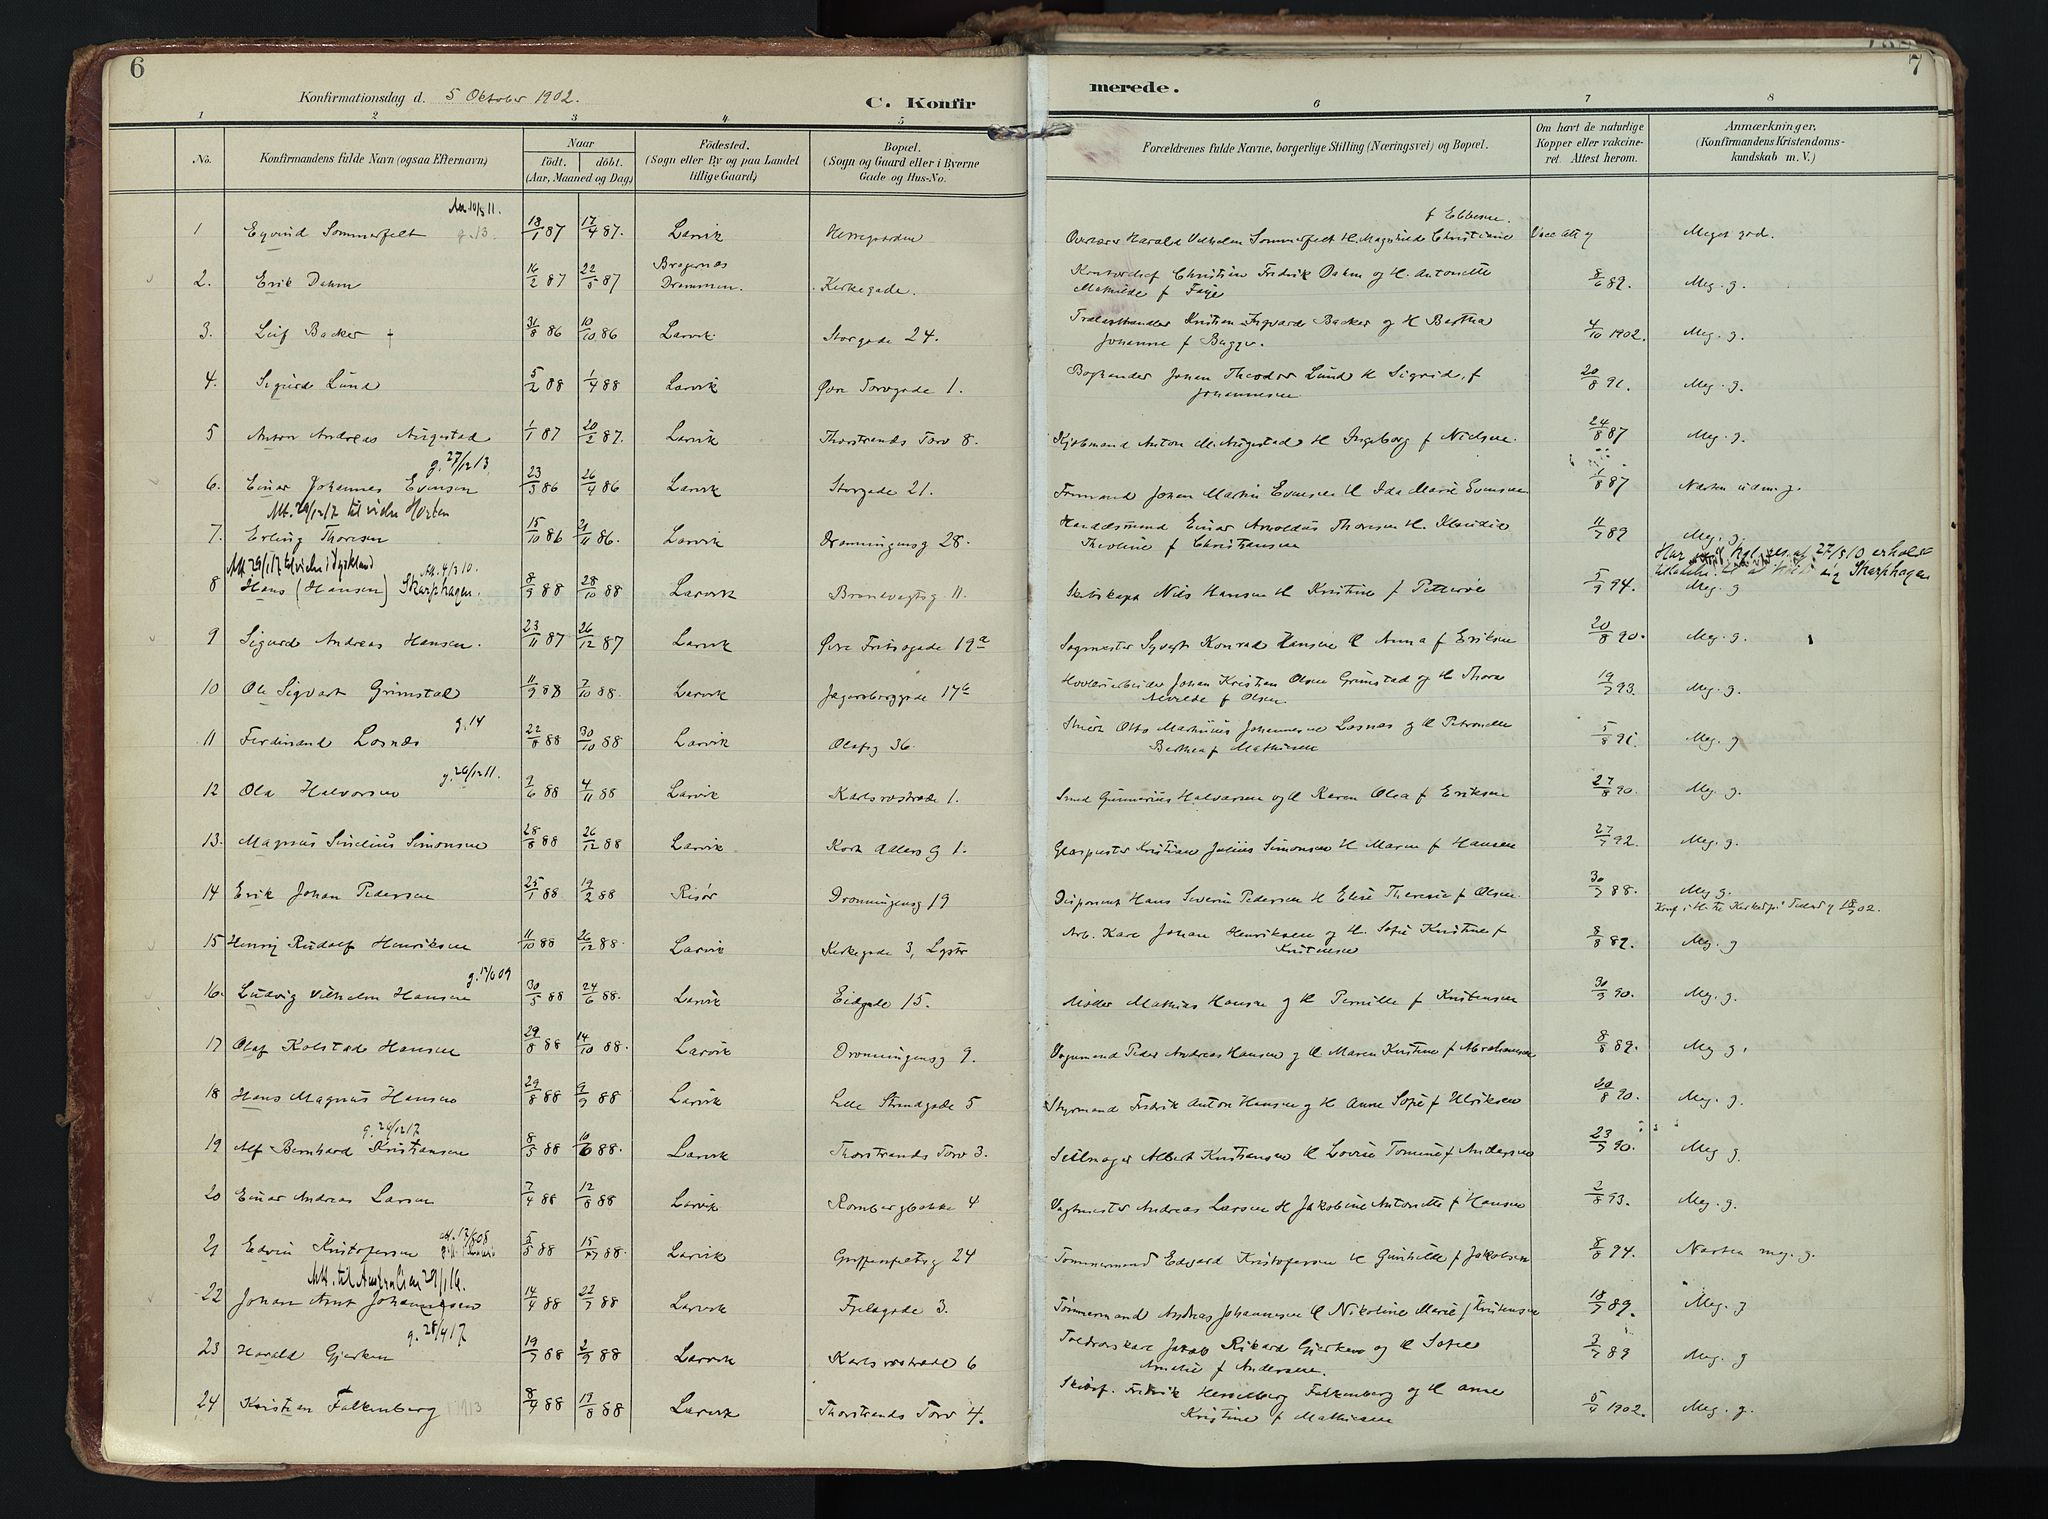 6
7
Konfirmationsdag d. 5 Oktober 1902.
C. Konfir
merede.
1 2 3 4 5 6 7 8
No.
Konfirmandens fulde Navn (ogsaa Efternavn)
Naar
født. døbt.
(Aar, Maaned og Dag)
Fødested.
(Sogn eller By og paa Landet
tillige Gaard)
Bopæl.
(Sogn og Gaard eller i Byerne
Gade og Hus-No.
Forældrenes fulde Navne, borgerlige Stilling (Næringsvei) og Bopæl.
Om havt de naturlige
Kopper eller vakcine-
ret. Attest herom.
Anmærkninger.
(Konfirmandens Kristendoms-
kundskab m. V.)
Att 10/3 11.
f Ebbesen.
1 Eyvind Sommerfelt g. 13. 13/1 87 17/4 87. Larvik Herregaarden Harald Vilhelm Sommerfelt H. Magnhilde Christiane Vacc att g Meget god.
2. Erik Dahm 16/2 87 22/5 87 Bragernæs Drammen. Kirkegade. Christian Fredrik Dahm og H Antonette
Mathilde f Faye 8/6 89. Meg. g.
3. Leif Backer + 31/8 86 10/10 86 Larvik Storgade 24. Kristian Sigvard Backer og H Bertha
Johanne f Bugge. 4/10 1902. Meg. g.
4. Sigurd Lund 5/2 88 1/4 88 Larvik Øvre Torvgade 1. Boghandler Johan Theodor Lund H Sigrid, f
Johannesen 20/8 91. Meg. g.
5 Anton Andreas Augestad 1/1 87 20/2 87. Larvik Thorstrands Torv 8. Kjøbmand Anton M. Augestad H Ingeborg f Nielsen. 24/8 87 Meg. g.
g. 27/12 13.
6. Einar Johannes Evensen 23/3 86 26/4 86 Larvik Storgade 21. Johan Martin Evensen H Ida Marie Evensen 1/8 87 Næsten udm. g.
Att. 29/12 17 til vielse Horten
7. Erling Thoresen 15/10 86 21/11 86. Larvik Dronningensg 28. Handelsmand Einar Arnoldus Thoresen H. Klaudia
Theoline f Christiansen 11/7 89 Meg. g.
Att 29/1 17 til vielse i Tyskland
Att. 4/3 10.
Har kgl. res. af 27/8 10 erholdt
tilladelse til at kalde sig Skarphagen
8 Hans (Hansen) Skarphagen. 8/9 88 28/10 88 Larvik Brandvagtsg 11. Nils Hansen H Kristine f Pettersen 5/9 94. Meg. g
9 Sigurd Andreas Hansen. 23/11 87 26/12 87 Larvik Øvre Fritzøgade 19a Sagmester Syvert Konrad Hansen H Anna f Eriksen 20/8 90. Meg. g.
10 Ole Sigvart Grimstad 11/9 88 7/10 88. Larvik Jegersborggade 17b Høvleriarbeider Johan Kristian Olsen Grimstad og H Thora
Alvilde f Olsen. 19/7 93. Meg. g.
g. 14
11 Ferdinand Losnæs 22/8 88 30/10 88 Larvik Olafsg 36. Otto Mathinius Johannesen Losnæs og H Petronelle
Berthea f Mathisen 5/8 91. Meg. g
g. 26/12 11.
12 Ola Halvorsen 9/6 88 4/11 88 Larvik Karlsrostræde 1. Smed Gunnerius Halvorsen og H Karen Olea f Eriksen 27/8 90. Meg. g.
13. Magnus Sinelius Simonsen 28/8 88 26/12 88 Larvik Kort Adlers g 1. Glaspuster Kristian Julius Simonsen H Maren f Hansen 27/7 92. Meg. g.
14 Erik Johan Pedersen 25/1 88 19/2 88 Risør Dronningensg 19 Disponent Hans Severin Pedersen H Elise Theresie f Olsen 30/7 88. Meg g.
15 Henrij Rudolf Henriksen 11/10 88 26/12 88. Larvik Kirkegade 3, Lystr Arb. Karl Johan Henriksen og H. Sofie Kristine f
Kristensen 8/8 89. Meg. g
g. 17/10 09
16. Ludvig Vilhelm Hansen 30/5 88 24/6 88. Larvik Eidgade 15. Møller Mathias Hansen g H Pernille f Kristensen 30/9 90. Meg. g.
17 Olaf Kolstad Hansen 29/8 88 14/10 88. Larvik Dronningensg 9. Peder Andreas Hansen g H Maren Kristine f Abrahamsen 8/8 89. Meg g.
18 Hans Magnus Hansen 29/8 88 9/9 88 Larvik Lille Strandgade 5 Styrmand Fredrik Anton Hansen g H Anne Sofie f Ulriksen 20/8 90. Meg. g.
g. 26/12 17
19 Alf Bernhard Kristiansen 8/5 88 10/6 88. Larvik Thorstrands Torv 3. Seilmager Albert Kristiansen H Lovise Tomine f Andersen 23/7 90. Meg g.
20 Einar Andreas Larsen 7/4 88 12/8 88 Larvik Rombergbakke 4 Vagtmester Andreas Larsen H Jakobine Antonette f Hansen 2/8 93. Meg. g.
21 Edvin Kristofersen 5/5 88 15/7 88. Larvik Griffenfeltsg 24 Tømmermand Edvard Kristofersen H Gunhilde f Jakobsen 8/8 94. Næsten meg. g.
Att. til Australien 29/1 16.
22 Johan Arnt Johannesen 14/4 88 22/7 88 Larvik Fjelegade 3. Tømmermand Andreas Johannesen H Nikoline Marie f Kristensen 18/7 89. Meg. g
g. 28/4 17
23 Harald Gjerken 19/7 88 2/9 88 Larvik Karlsrostræde 6 Jakob Rikard Gjerken og H Sofie
Amalie f Andersen. 3/7 89 Meg. g
24 Kristian Falkenberg 1913 8/4 88 19/8 88 Larvik Thorstrands Torv 4. Fredrik Hesselberg Falkenberg og H Anne
Kristine f Mathisen 5/4 1902. Meg. g.